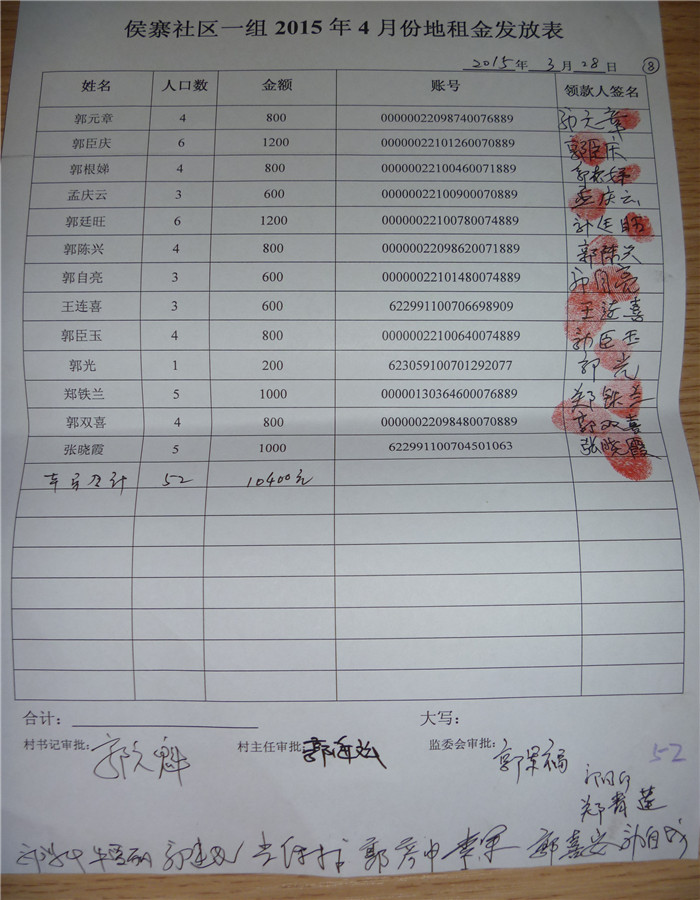 侯寨社区一组 2015 年 4 月份地租金发放表
2015年 3月 28日 ⑧
姓名 人口数 金额 账号 领款人签名
郭元章 4 800 00000022098740076889 郭元章
郭臣庆 6 1200 00000022101260070889 郭臣庆
郭根娣 4 800 00000022100460071889 郭根娣
孟庆云 3 600 00000022100900070889 孟庆云
郭廷旺 6 1200 00000022100780074889 郭廷旺
郭陈兴 4 800 00000022098620071889 郭陈兴
郭自亮 3 600 00000022101480074889 郭自亮
王连喜 3 600 622991100706698909 王连喜
郭臣玉 4 800 00000022100640074889 郭臣玉
郭光 1 200 623059100701292077 郭光
郑铁兰 5 1000 00000130364600076889 郑铁兰
郭双喜 4 800 00000022098480070889 郭双喜
张晓霞 5 1000 622991100704501063 张晓霞
本页合计 52 10400元
合计： 大写：
村书记审批： 村主任审批： 监委会审批：
52
郑青莲